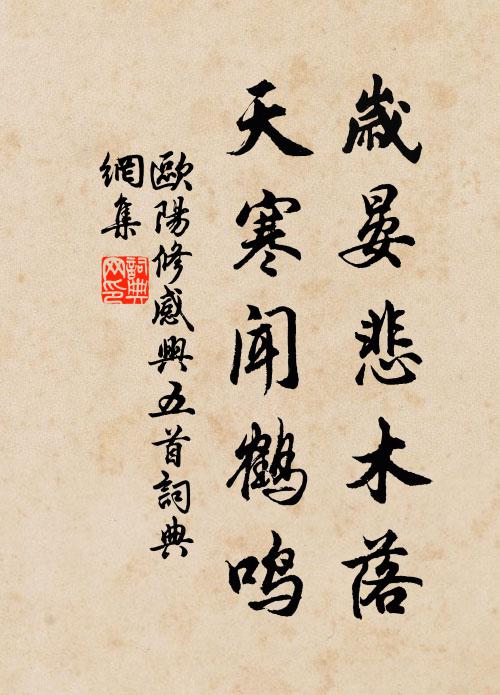 歲晏悲木落
天寒闻鶴鸣
歐陽修感興五首詞典
網集
詞典
网印